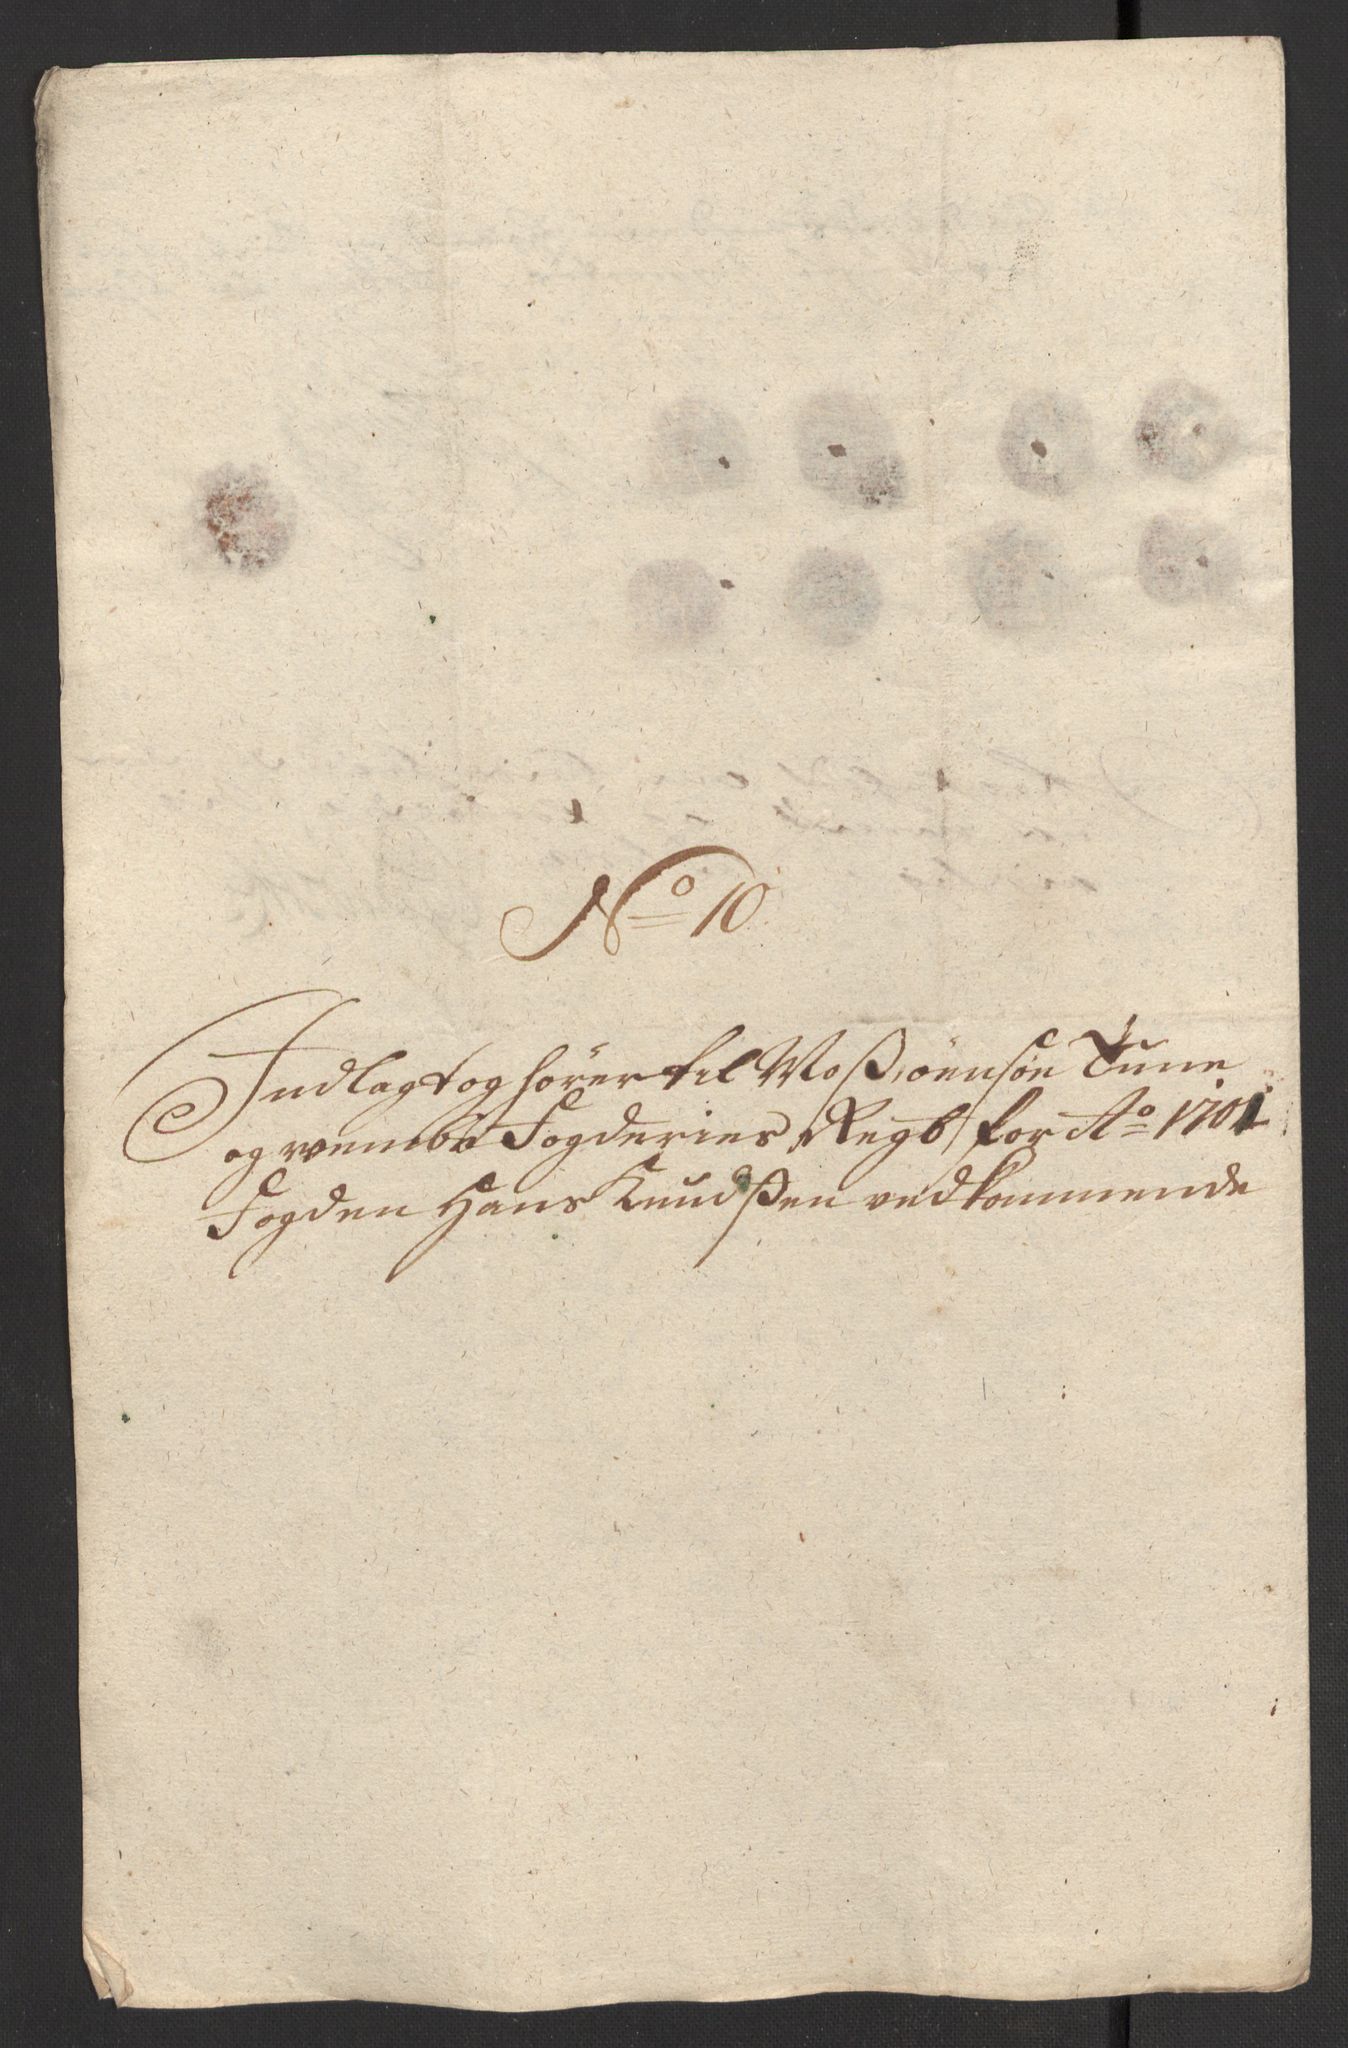 No 10
Indlagt og hörer til Moss, önensöe Tune
og wembs Fogderies Regb for Ao 1701
Fogden Hans Knudssen vedkommende